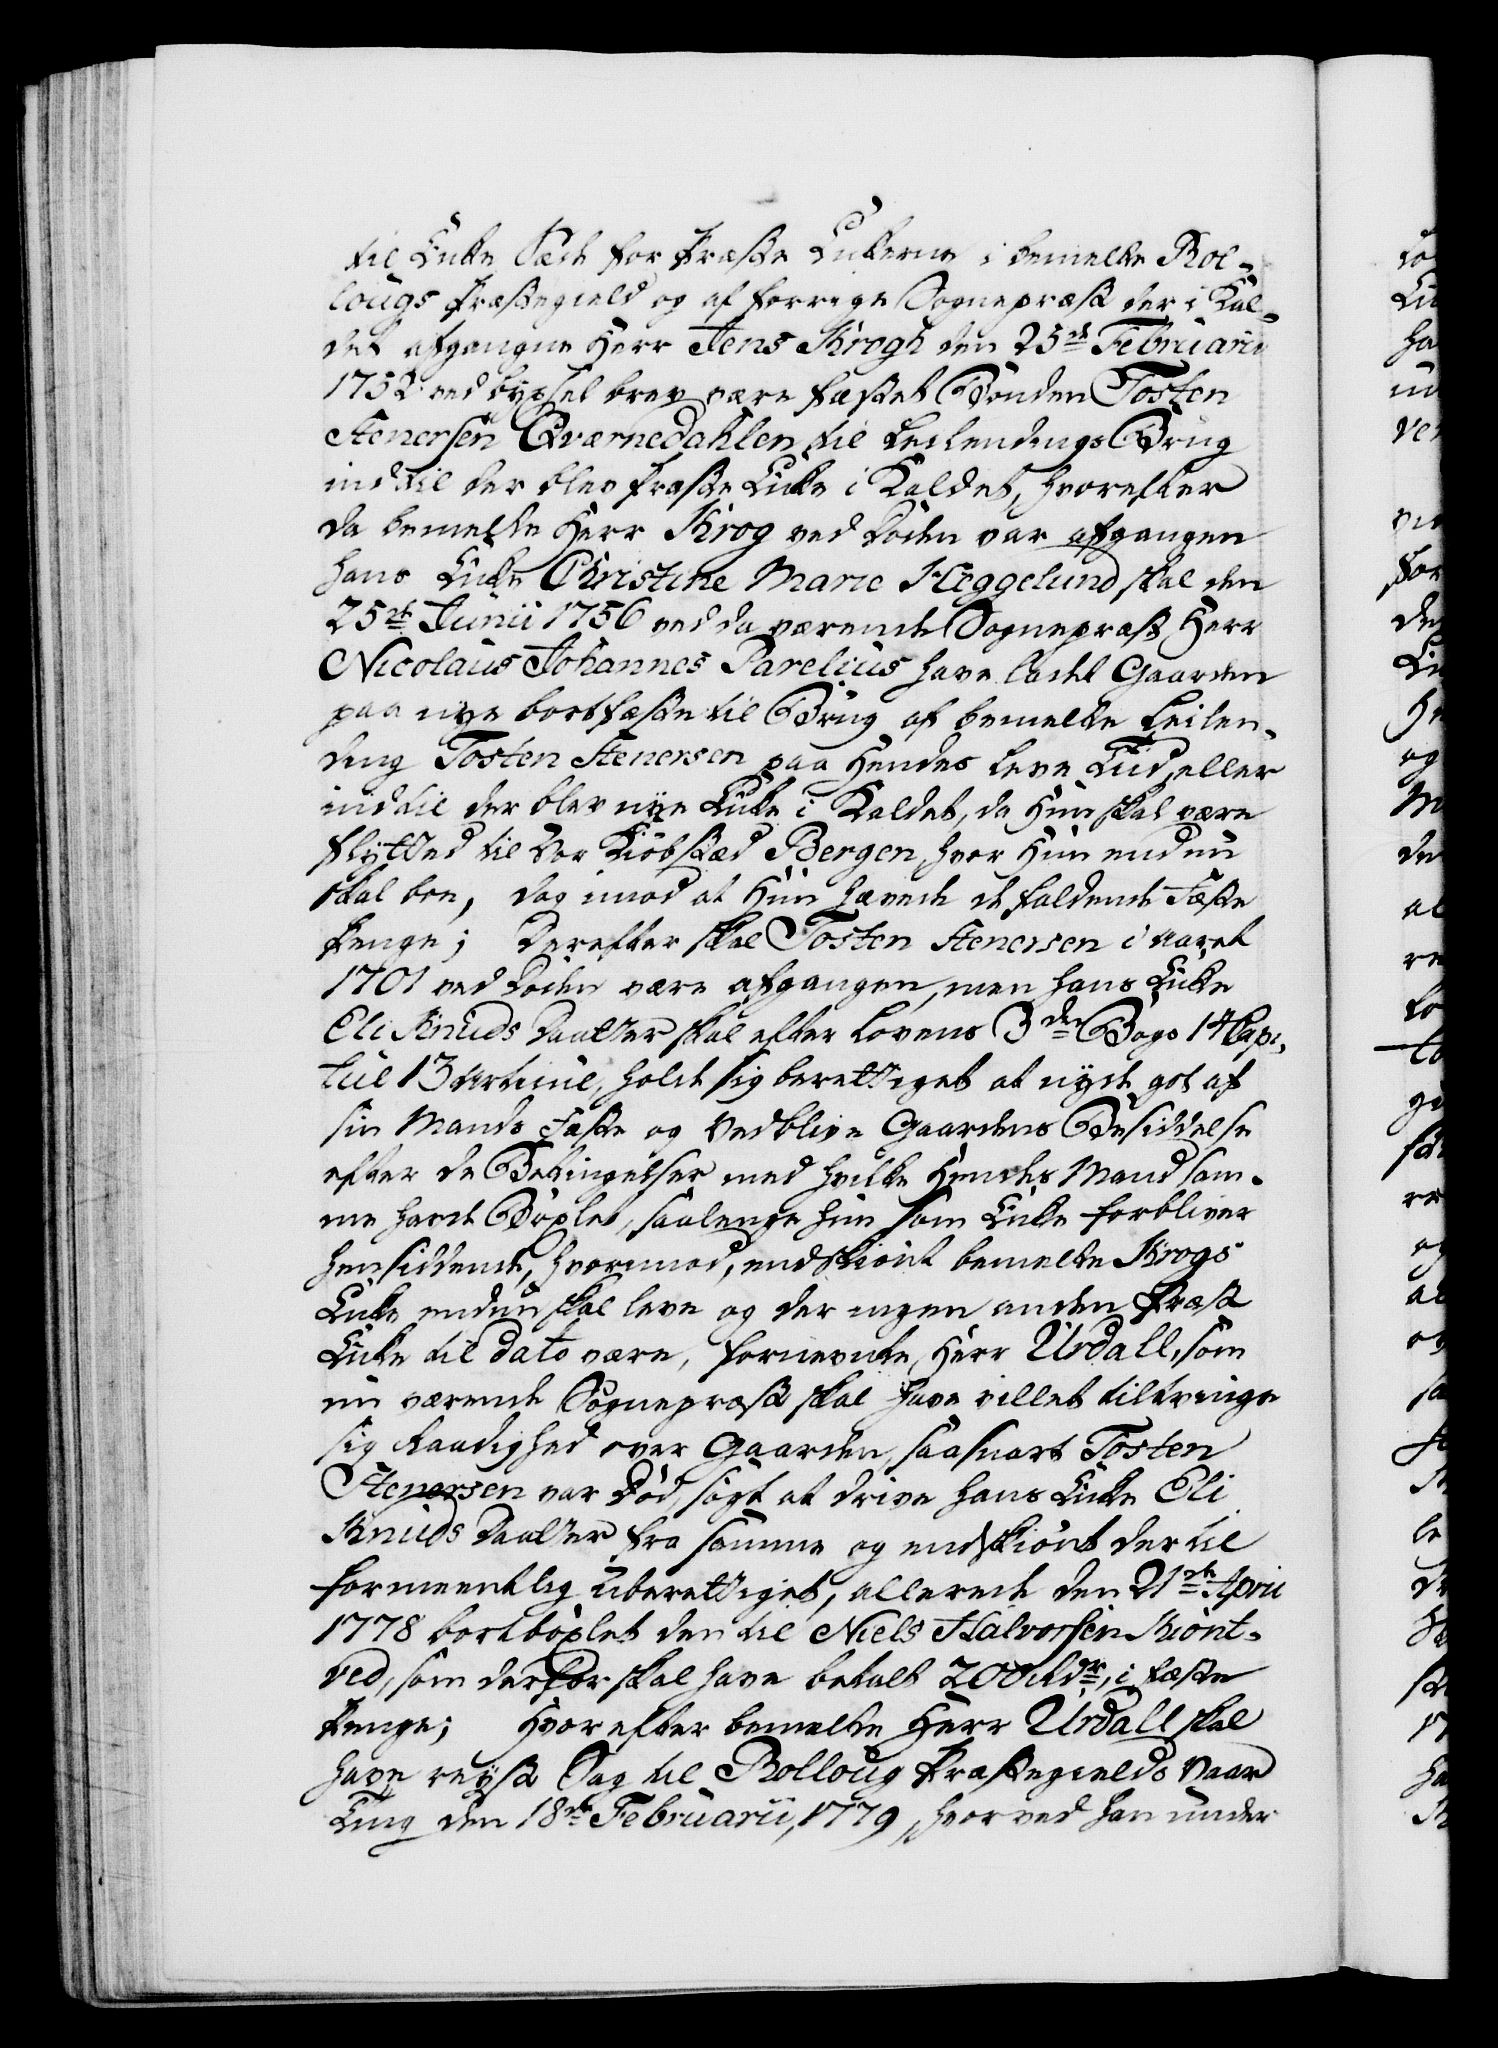 til Enke Sæde for Præste Enkerne i bemelte Rol-
lougs Præstegield og af forrige Sognepræst der i Kal-
det afgangne Herr Jens Krogh den 25de Februarii
1752 ved bygsel brev være fæstet Bonden Tosten
Stenersen Qværnedahlen til Leilendings Brug
indtil der blev Præste Enke i Kaldet, hvorefter
da bemelte Herr Krog ved Døden var afgangen
hans Enke Christine Marie Heggelund skal den
25de Junii 1756 ved da værende Sognepræst Herr
Nicolaus Johannes Parelius have ladet Gaarden
paa nye bortfæste til Brug af bemelte Leilen-
ding Tosten Stenersen paa Hendes leve Tiid, eller
indtil der blev nye Enke i Kaldet, da Hun skal være
flytted til Vor Kiøbstæd Bergen, hvor Hun endnu
skal boe, dog imod at Hun hævede de faldende Fæste
Penge; Derefter skal Tosten Stenersen i Aaret
1701 ved Døden være afgangen, men hans Enke
Eli Knuds Daatter skal efter Lovens 3de Bogs 14 Capi-
tul 13 Articul, holdt sig berettiget at nyde got af
sin Mands Fæste og vedblive Gaardens Besiddelse
efter de Betingelser med hvilke Hendes Mand sam-
me havde Bøxlet, saalenge hun som Enke forbliver
hensiddende, hvorimod, endskiønt bemelte Krogs
Enke endnu skal leve og der ingen anden Præst
Enke til dato være, fornevnte Herr Urdall, som
nu værende Sognepræst skal have villet tiltvinge
sig Raadighed over Gaarden, saasnart Tosten
Stenersen var Død, søgt at drive hans Enke Eli
Knuds Daatter fra samme og endskiønt der til
formeentlig uberettiget, allerede den 21de April
1778 bortbøxlet den til Niels Halvorsen Kiønt-
ved, som derfor skal have betalt 200 Rdr, i Fæste
Penge; Hvorefter bemelte Herr Urdall skal
have reyst Sag til Rolloug Præstegields Vaar
Ting den 18de Februarii, 1779, hvorved han under